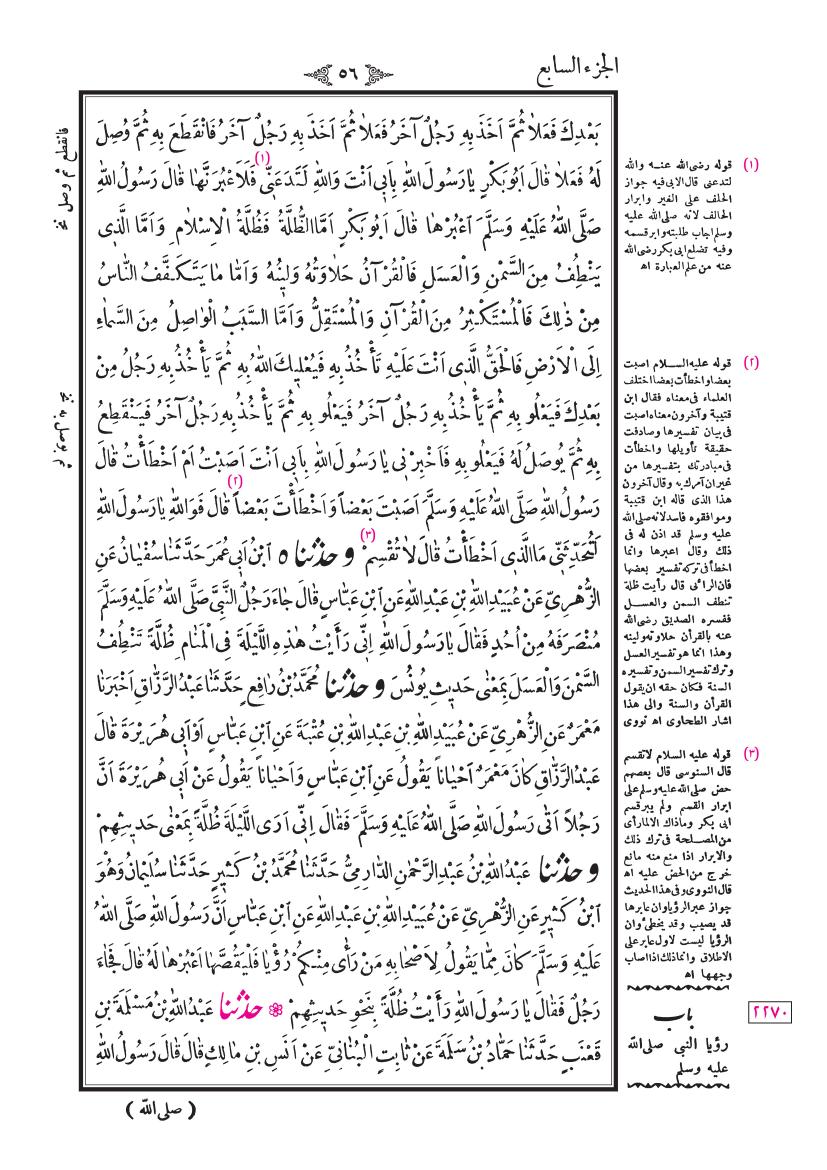 الجزء السابع
٥٦
بَعْدِكَ فَعَلَا ثُمَّ اَخَذَ بِهِ رَجُلٌ آخَرُ فَعَلَا ثُمَّ اَخَذَ بِهِ رَجُلٌ آخَرُ فَانْقَطَعَ بِهِ ثُمَّ وُصِلَ
لَهُ فَعَلَا قَالَ اَبُو بَكْرٍ يَا رَسُولَ اللّٰهِ بِاَبِى اَنْتَ وَاللّٰهِ لَتَدَعَنِّى (١) فَلَاَعْبُرَنَّهَا قَالَ رَسُولُ اللّٰهِ
صَلَّى اللّٰهُ عَلَيْهِ وَسَلَّمَ اَعْبُرْهَا قَالَ اَبُو بَكْرٍ اَمَّا الظُّلَّةُ فَظُلَّةُ الْاِسْلَامِ وَاَمَّا الَّذِى
يَنْطِفُ مِنَ السَّمْنِ وَالْعَسَلِ فَالْقُرْآنُ حَلَاوَتُهُ وَلِينُهُ وَاَمَّا مَا يَتَكَفَّفُ النَّاسُ
مِنْ ذٰلِكَ فَالْمُسْتَكْثِرُ مِنَ الْقُرْآنِ وَالْمُسْتَقِلُّ وَاَمَّا السَّبَبُ الْوَاصِلُ مِنَ السَّمَاءِ
اِلَى الْاَرْضِ فَالْحَقُّ الَّذِى اَنْتَ عَلَيْهِ تَأْخُذُ بِهِ فَيُعْلِيكَ اللّٰهُ بِهِ ثُمَّ يَأْخُذُ بِهِ رَجُلٌ مِنْ
بَعْدِكَ فَيَعْلُو بِهِ ثُمَّ يَأْخُذُ بِهِ رَجُلٌ آخَرُ فَيَعْلُو بِهِ ثُمَّ يَأْخُذُ بِهِ رَجُلٌ آخَرُ فَيَنْقَطِعُ
بِهِ ثُمَّ يُوصَلُ لَهُ فَيَعْلُو بِهِ فَاَخْبِرْنِى يَا رَسُولَ اللّٰهِ بِاَبِى اَنْتَ اَصَبْتُ اَمْ اَخْطَأْتُ قَالَ
رَسُولُ اللّٰهِ صَلَّى اللّٰهُ عَلَيْهِ وَسَلَّمَ اَصَبْتَ بَعْضاً وَاَخْطَأْتَ بَعْضاً (٢) قَالَ فَوَاللّٰهِ يَا رَسُولَ اللّٰهِ
لَتُحَدِّثَنِّى مَا الَّذِى اَخْطَأْتُ قَالَ لَا تُقْسِمْ (٣) وحدثناه ابْنُ اَبِى عُمَرَ حَدَّثَنَا سُفْيَانُ عَنِ
الزُّهْرِىِّ عَنْ عُبَيْدِ اللّٰهِ بْنِ عَبْدِ اللّٰهِ عَنِ ابْنِ عَبَّاسٍ قَالَ جَاءَ رَجُلٌ النَّبِىَّ صَلَّى اللّٰهُ عَلَيْهِ وَسَلَّمَ
مُنْصَرَفَهُ مِنْ اُحُدٍ فَقَالَ يَا رَسُولَ اللّٰهِ اِنِّى رَأَيْتُ هٰذِهِ اللَّيْلَةَ فِى الْمَنَامِ ظُلَّةً تَنْطِفُ
السَّمْنَ وَالْعَسَلَ بِمَعْنَى حَدِيثِ يُونُسَ وحدثنا مُحَمَّدُ بْنُ رَافِعٍ حَدَّثَنَا عَبْدُ الرَّزَّاقِ اَخْبَرَنَا
مَعْمَرٌ عَنِ الزُّهْرِىِّ عَنْ عُبَيْدِ اللّٰهِ بْنِ عَبْدِ اللّٰهِ بْنِ عُتْبَةَ عَنِ ابْنِ عَبَّاسٍ اَوْ اَبِى هُرَيْرَةَ قَالَ
عَبْدُ الرَّزَّاقِ كَانَ مَعْمَرٌ اَحْيَاناً يَقُولُ عَنِ ابْنِ عَبَّاسٍ وَاَحْيَاناً يَقُولُ عَنْ اَبِى هُرَيْرَةَ اَنَّ
رَجُلاً اَتَى رَسُولَ اللّٰهِ صَلَّى اللّٰهُ عَلَيْهِ وَسَلَّمَ فَقَالَ اِنِّى اَرَى اللَّيْلَةَ ظُلَّةً بِمَعْنَى حَدِيثِهِمْ
وحدثنا عَبْدُ اللّٰهِ بْنُ عَبْدِ الرَّحْمٰنِ الدَّارِمِىُّ حَدَّثَنَا مُحَمَّدُ بْنُ كَثِيرٍ حَدَّثَنَا سُلَيْمَانُ وَهُوَ
ابْنُ كَثِيرٍ عَنِ الزُّهْرِىِّ عَنْ عُبَيْدِ اللّٰهِ بْنِ عَبْدِ اللّٰهِ عَنِ ابْنِ عَبَّاسٍ اَنَّ رَسُولَ اللّٰهِ صَلَّى اللّٰهُ
عَلَيْهِ وَسَلَّمَ كَانَ مِمَّا يَقُولُ لِاَصْحَابِهِ مَنْ رَأَى مِنْكُمْ رُؤْيَا فَلْيَقُصَّهَا اَعْبُرْهَا لَهُ قَالَ فَجَاءَ
رَجُلٌ فَقَالَ يَا رَسُولَ اللّٰهِ رَأَيْتُ ظُلَّةً بِنَحْوِ حَدِيثِهِمْ حدثنا عَبْدُ اللّٰهِ بْنُ مَسْلَمَةَ بْنِ
قَعْنَبٍ حَدَّثَنَا حَمَّادُ بْنُ سَلَمَةَ عَنْ ثَابِتٍ الْبُنَانِىِّ عَنْ اَنَسِ بْنِ مَالِكٍ قَالَ قَالَ رَسُولُ اللّٰهِ
( صلى اللّٰه )
(١) قوله رضى اللّٰه عنه واللّٰه
لتدعنى قال الابى فيه جواز
الحلف على الغير وابرار
الحالف لانه صلى اللّٰه عليه
وسلم اجاب طلبته وابر قسمه
وفيه تضلع ابى بكر رضى اللّٰه
عنه من علم العبارة اه
(٢) قوله عليه السلام اصبت
بعضا واخطأت بعضا اختلف
العلماء فى معناه فقال ابن
قتيبة وآخرون معناه اصبت
فى بيان تفسيرها وصادفت
حقيقة تأويلها واخطأت
فى مبادرتك بتفسيرها من
غير ان آمرك به وقال آخرون
هذا الذى قاله ابن قتيبة
وموافقوه فاسد لانه صلى اللّٰه
عليه وسلم قد اذن له فى
ذلك وقال اعبرها وانما
اخطأ فى تركه تفسير بعضها
فان الرائى قال رأيت ظلة
تنطف السمن والعسل
ففسره الصديق رضى اللّٰه
عنه بالقرآن حلاوته ولينه
وهذا انما هو تفسير العسل
وترك تفسير السمن وتفسيره
السنة فكان حقه ان يقول
القرآن والسنة والى هذا
اشار الطحاوى اه نووى
(٣) قوله عليه السلام لا تقسم
قال السنوسى قال بعضهم
حض صلى اللّٰه عليه وسلم على
ابرار القسم ولم يبر قسم
ابى بكر وماذاك الا لما رأى
من المصلحة فى ترك ذلك
والابرار اذا منع منه مانع
خرج من الحض عليه اه
قال النووى وفى هذا الحديث
جواز عبر الرؤيا وان عابرها
قد يصيب وقد يخطئ وان
الرؤيا ليست لاول عابر على
الاطلاق وانما ذلك اذا اصاب
وجهها اه
باب
رؤيا النبى صلى اللّٰه
عليه وسلم
٢٢٧٠
فانقطع ثم وصل نخ
ثم يوصل به نخ